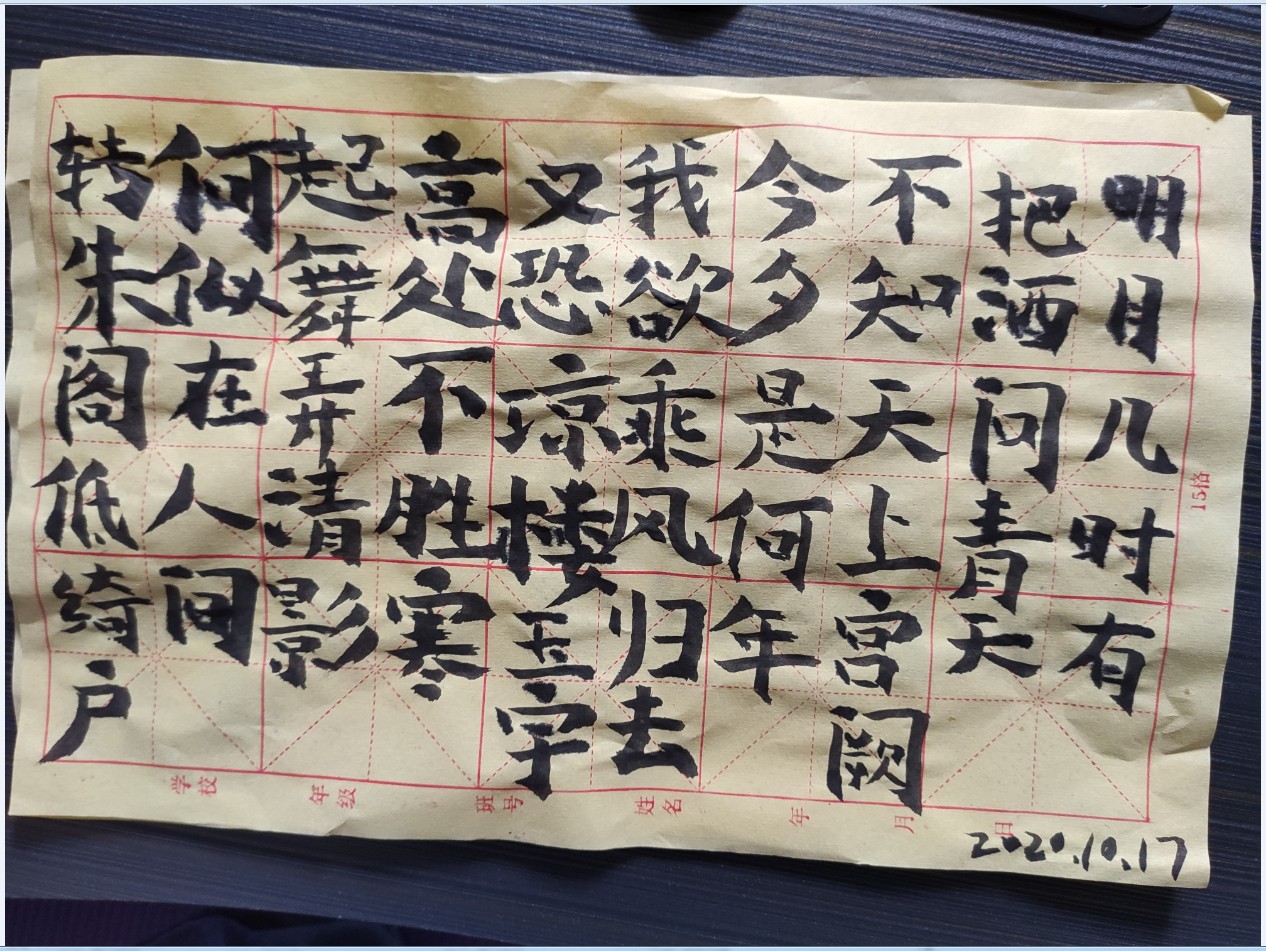 明月几时有
把酒问青天
不知天上宫阙
今夕是何年
我欲乘风归去
又恐凉楼玉宇
高处不胜寒
起舞弄清影
何似在人间
转朱阁低绮户
15格
学校 年级 班号 姓名 年 月 日
2020.10.17